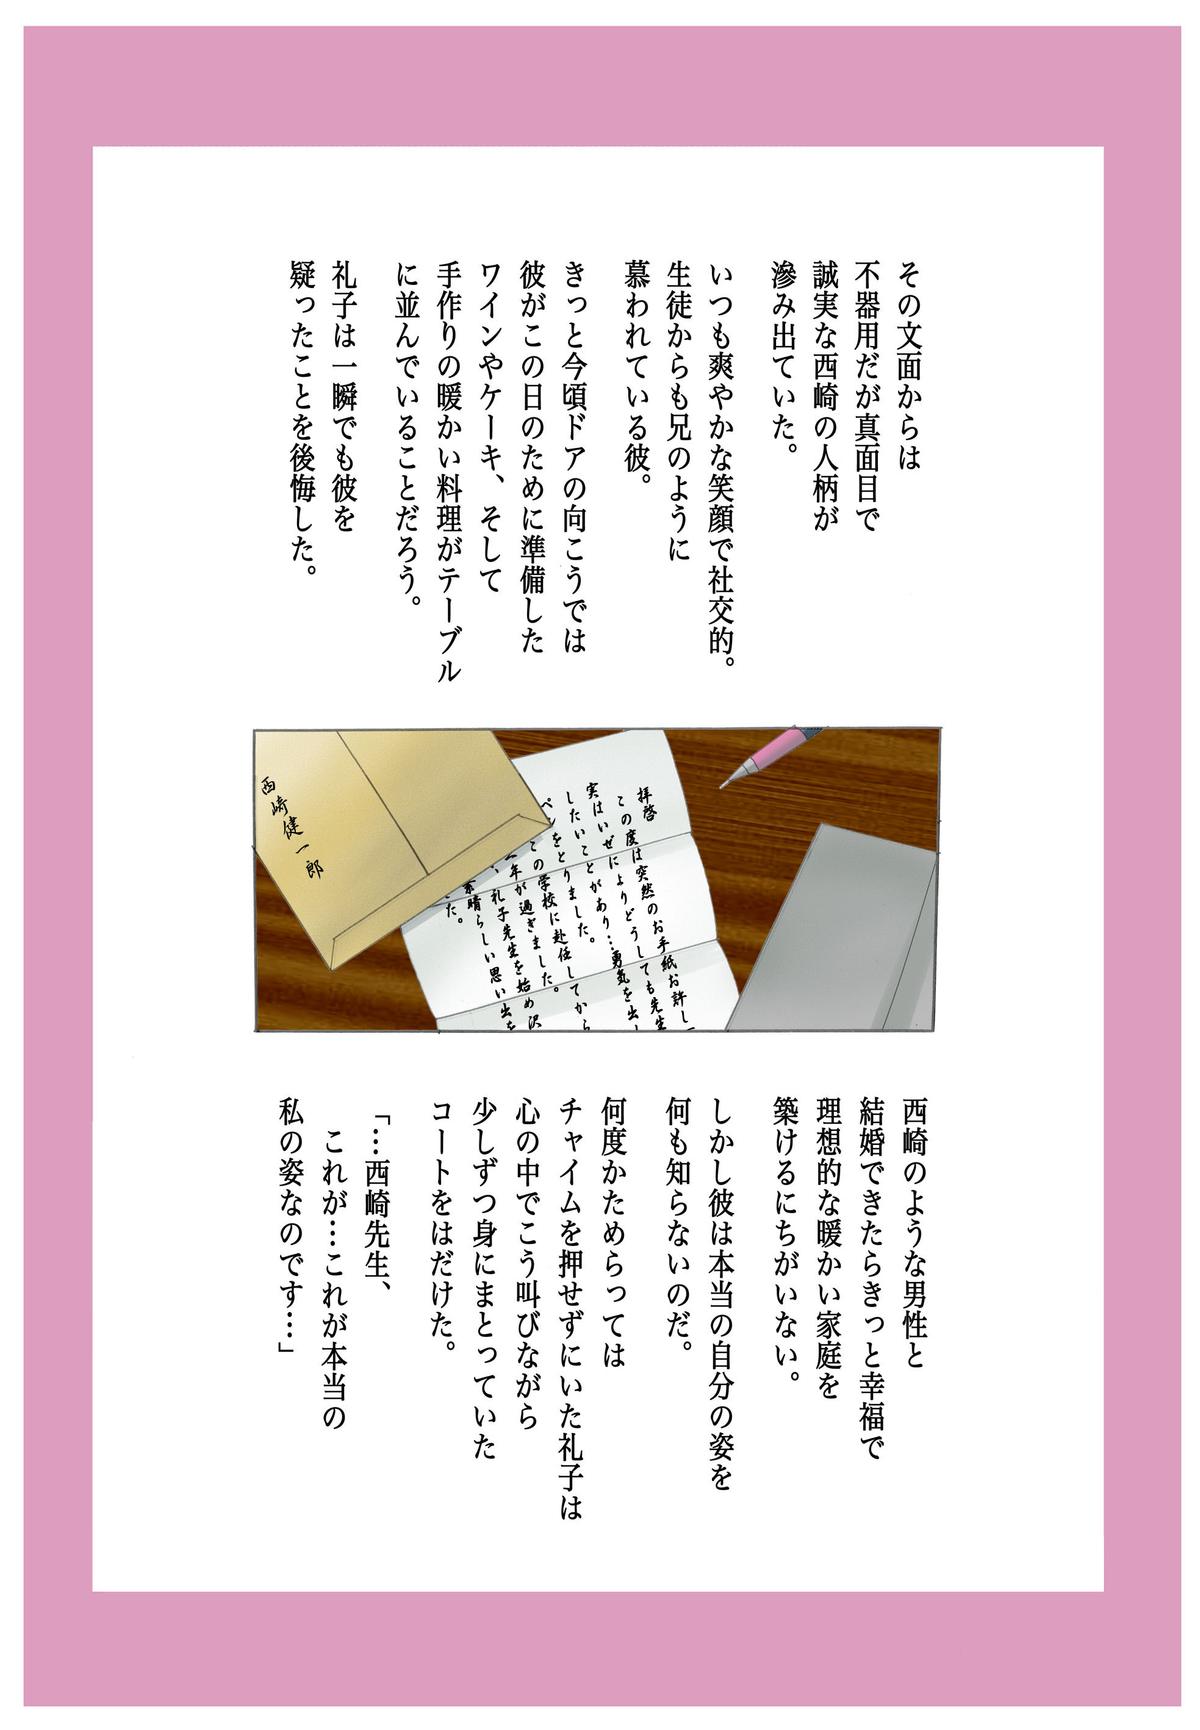 その文面からは
不器用だが真面目で
誠実な西崎の人柄が
滲み出ていた。
いつも爽やかな笑顔で社交的。
生徒からも兄のように
慕われている彼。
きっと今頃ドアの向こうでは
彼がこの日のために準備した
ワインやケーキ、そして
手作りの暖かい料理がテーブル
に並んでいることだろう。
礼子は一瞬でも彼を
疑ったことを後悔した。
拝啓
この度は突然のお手紙お許し
実はいぜによりどうしても先生
したいことがあり…勇気を出し
ペンをとりました。
この学校に赴任してから
年が過ぎました。
、礼子先生を始め沢
素晴らしい思い出を
た。
西崎健一郎
西崎のような男性と
結婚できたらきっと幸福で
理想的な暖かい家庭を
築けるにちがいない。
しかし彼は本当の自分の姿を
何も知らないのだ。
何度かためらっては
チャイムを押せずにいた礼子は
心の中でこう叫びながら
少しずつ身にまとっていた
コートをはだけた。
「…西崎先生、
これが…これが本当の
私の姿なのです…」